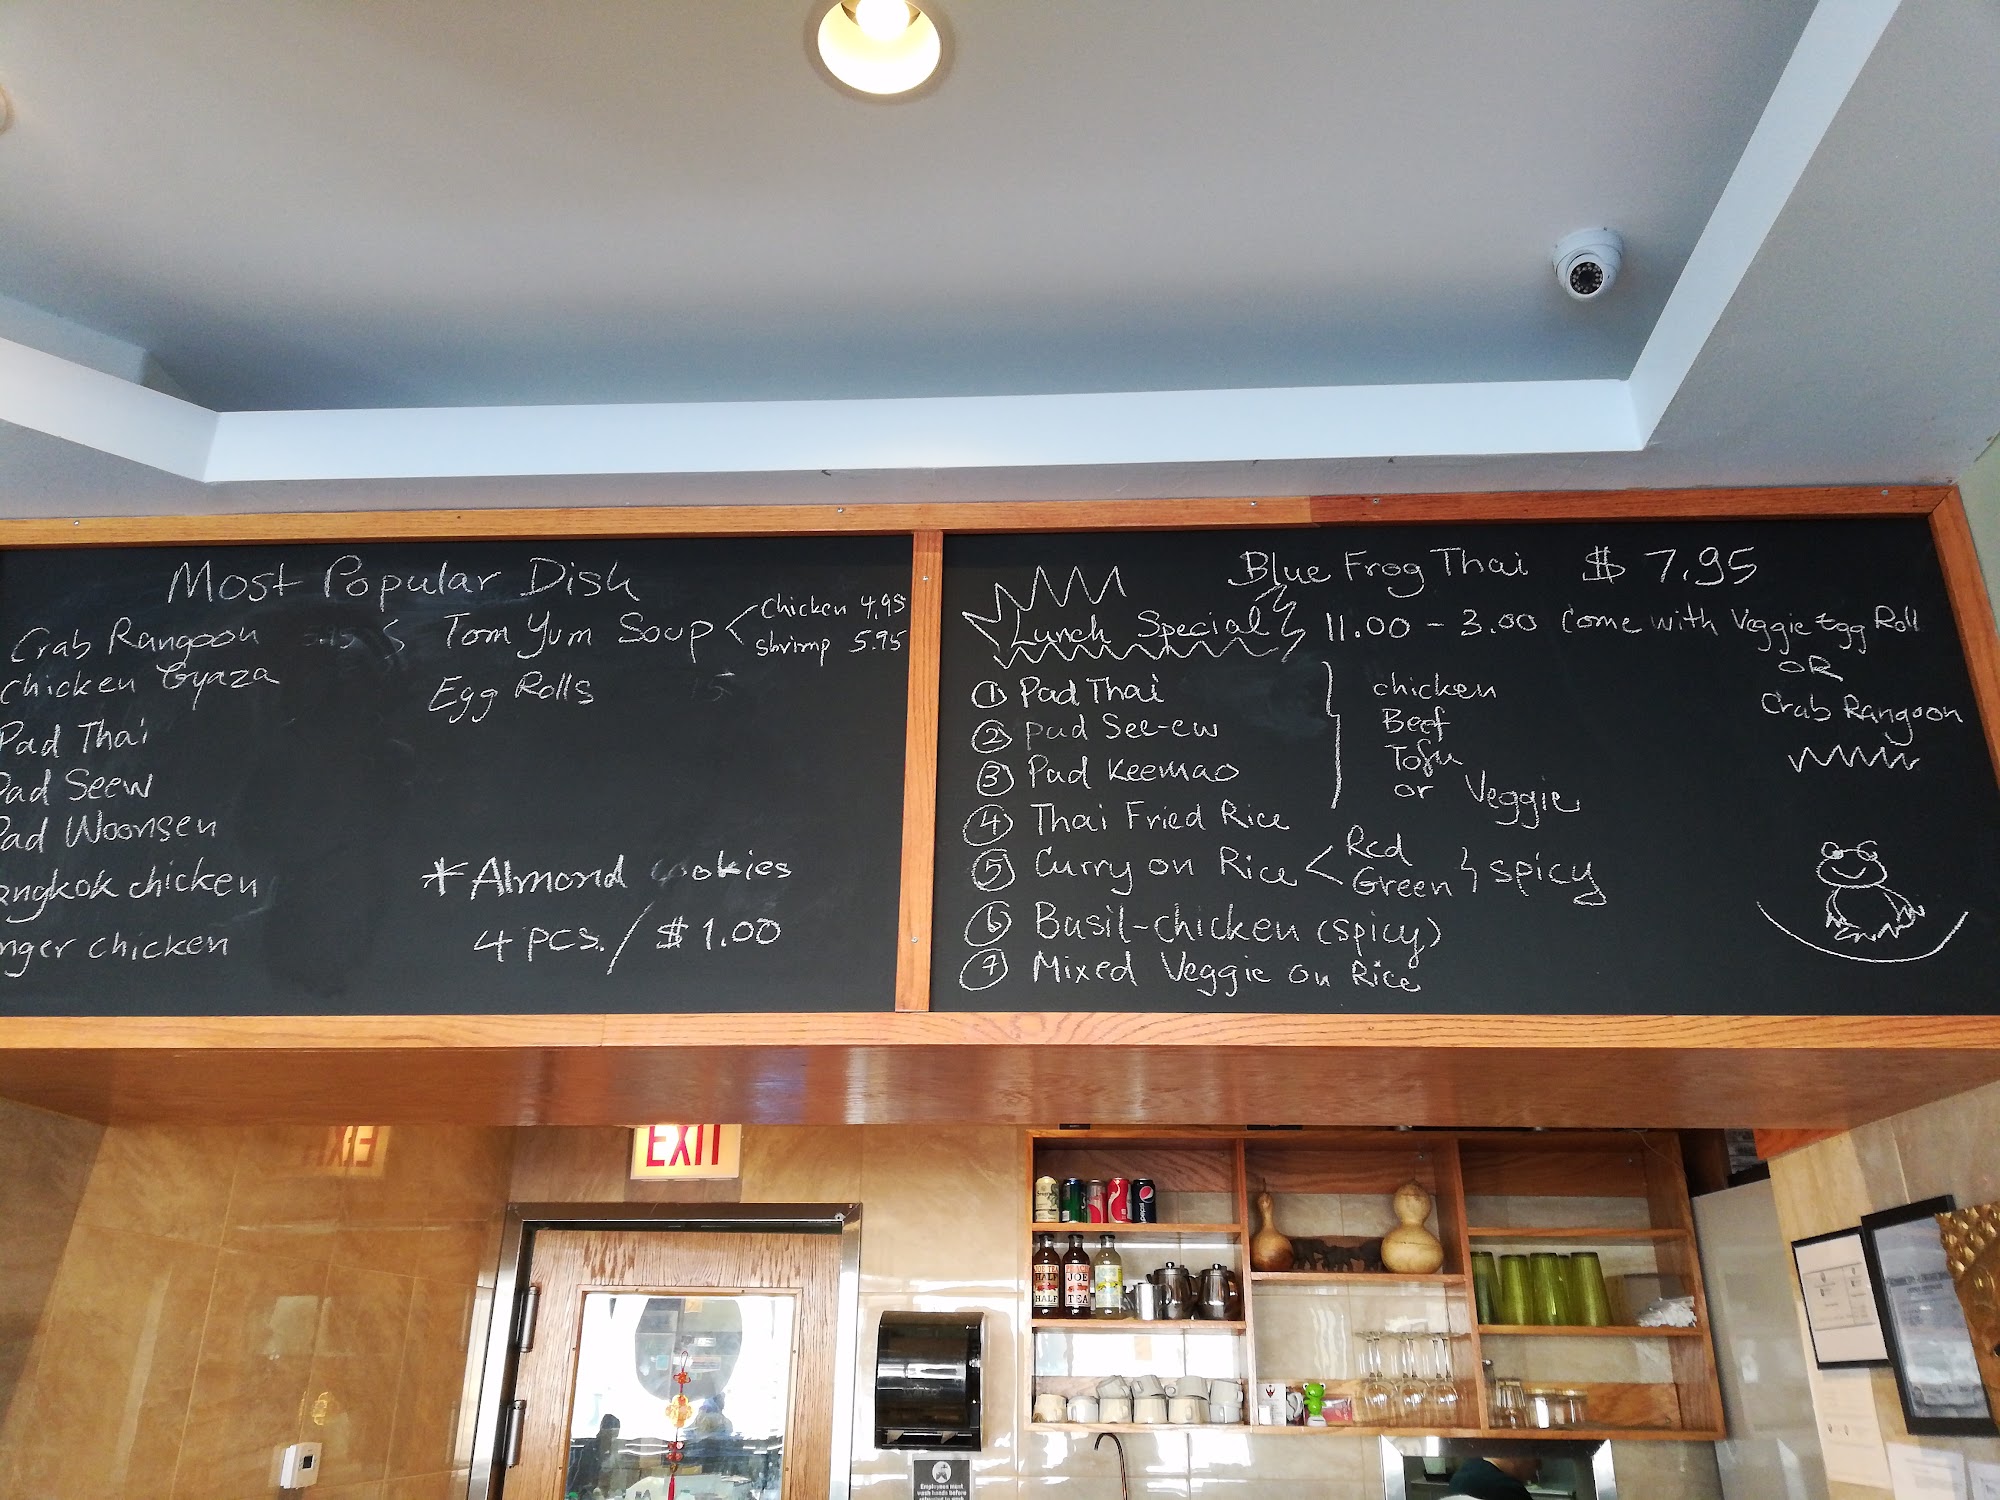 Most Popular Dish
Crab Rangoon
Chicken Gyaza
Pad Thai
Pad Seew
Pad Woonsen
angkok chicken
nger chicken
Tom Yum Soup
Chicken 4.95
shrimp 5.95
Egg Rolls
*Almond cookies
4 pcs. / $1.00
Blue Frog Thai $7.95
Lunch Special 11.00 - 3.00 Come with Veggie Egg Roll
OR
Crab Rangoon
① Pad Thai
② Pad See-ew
③ Pad Keemao
④ Thai Fried Rice
chicken
Beef
Tofu
or Veggie
⑤ Curry on Rice
Red
Green
spicy
⑥ Basil-chicken (spicy)
⑦ Mixed Veggie on Rice
EXIT
HALF
HALF
JOE
TEA
pepsi
Employees must
wash hands before